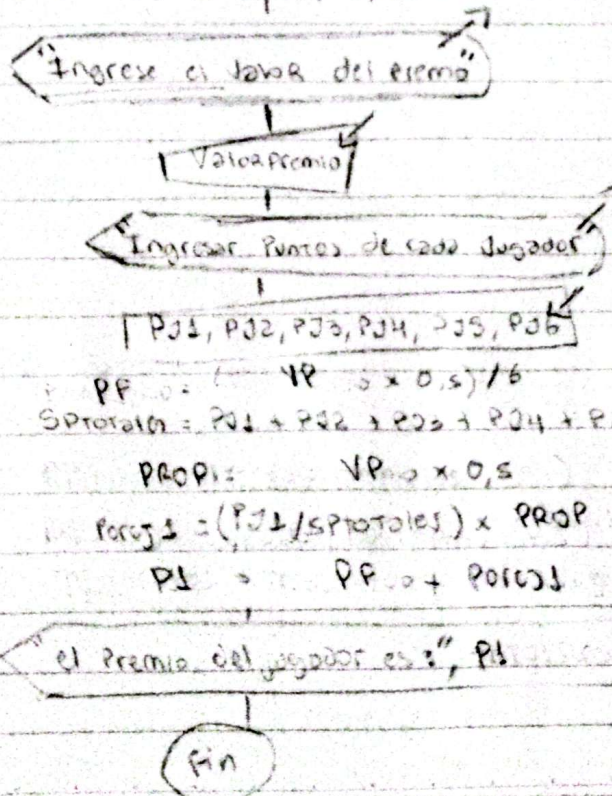 "Ingrese el valor del premio"
Valorpremio
"Ingresar Puntos de cada Jugador"
PJ1, PJ2, PJ3, PJ4, PJ5, PJ6
PF = ( VP x 0,5) / 6
SPTotales = PJ1 + PJ2 + PJ3 + PJ4 + P
PROP = VP x 0,5
PorcJ1 = (PJ1/SPTotales) x PROP
P1 = PF + PorcJ1
"el Premio del jugador es:", P1
Fin